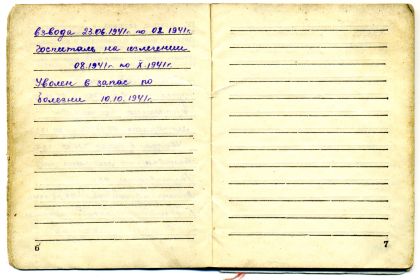 взвода 23.06.1941г. по 08.1941г.
госпиталь на излечении
08.1941г. по X.1941г.
Уволен в запас по
болезни 10.10.1941г.
6
7